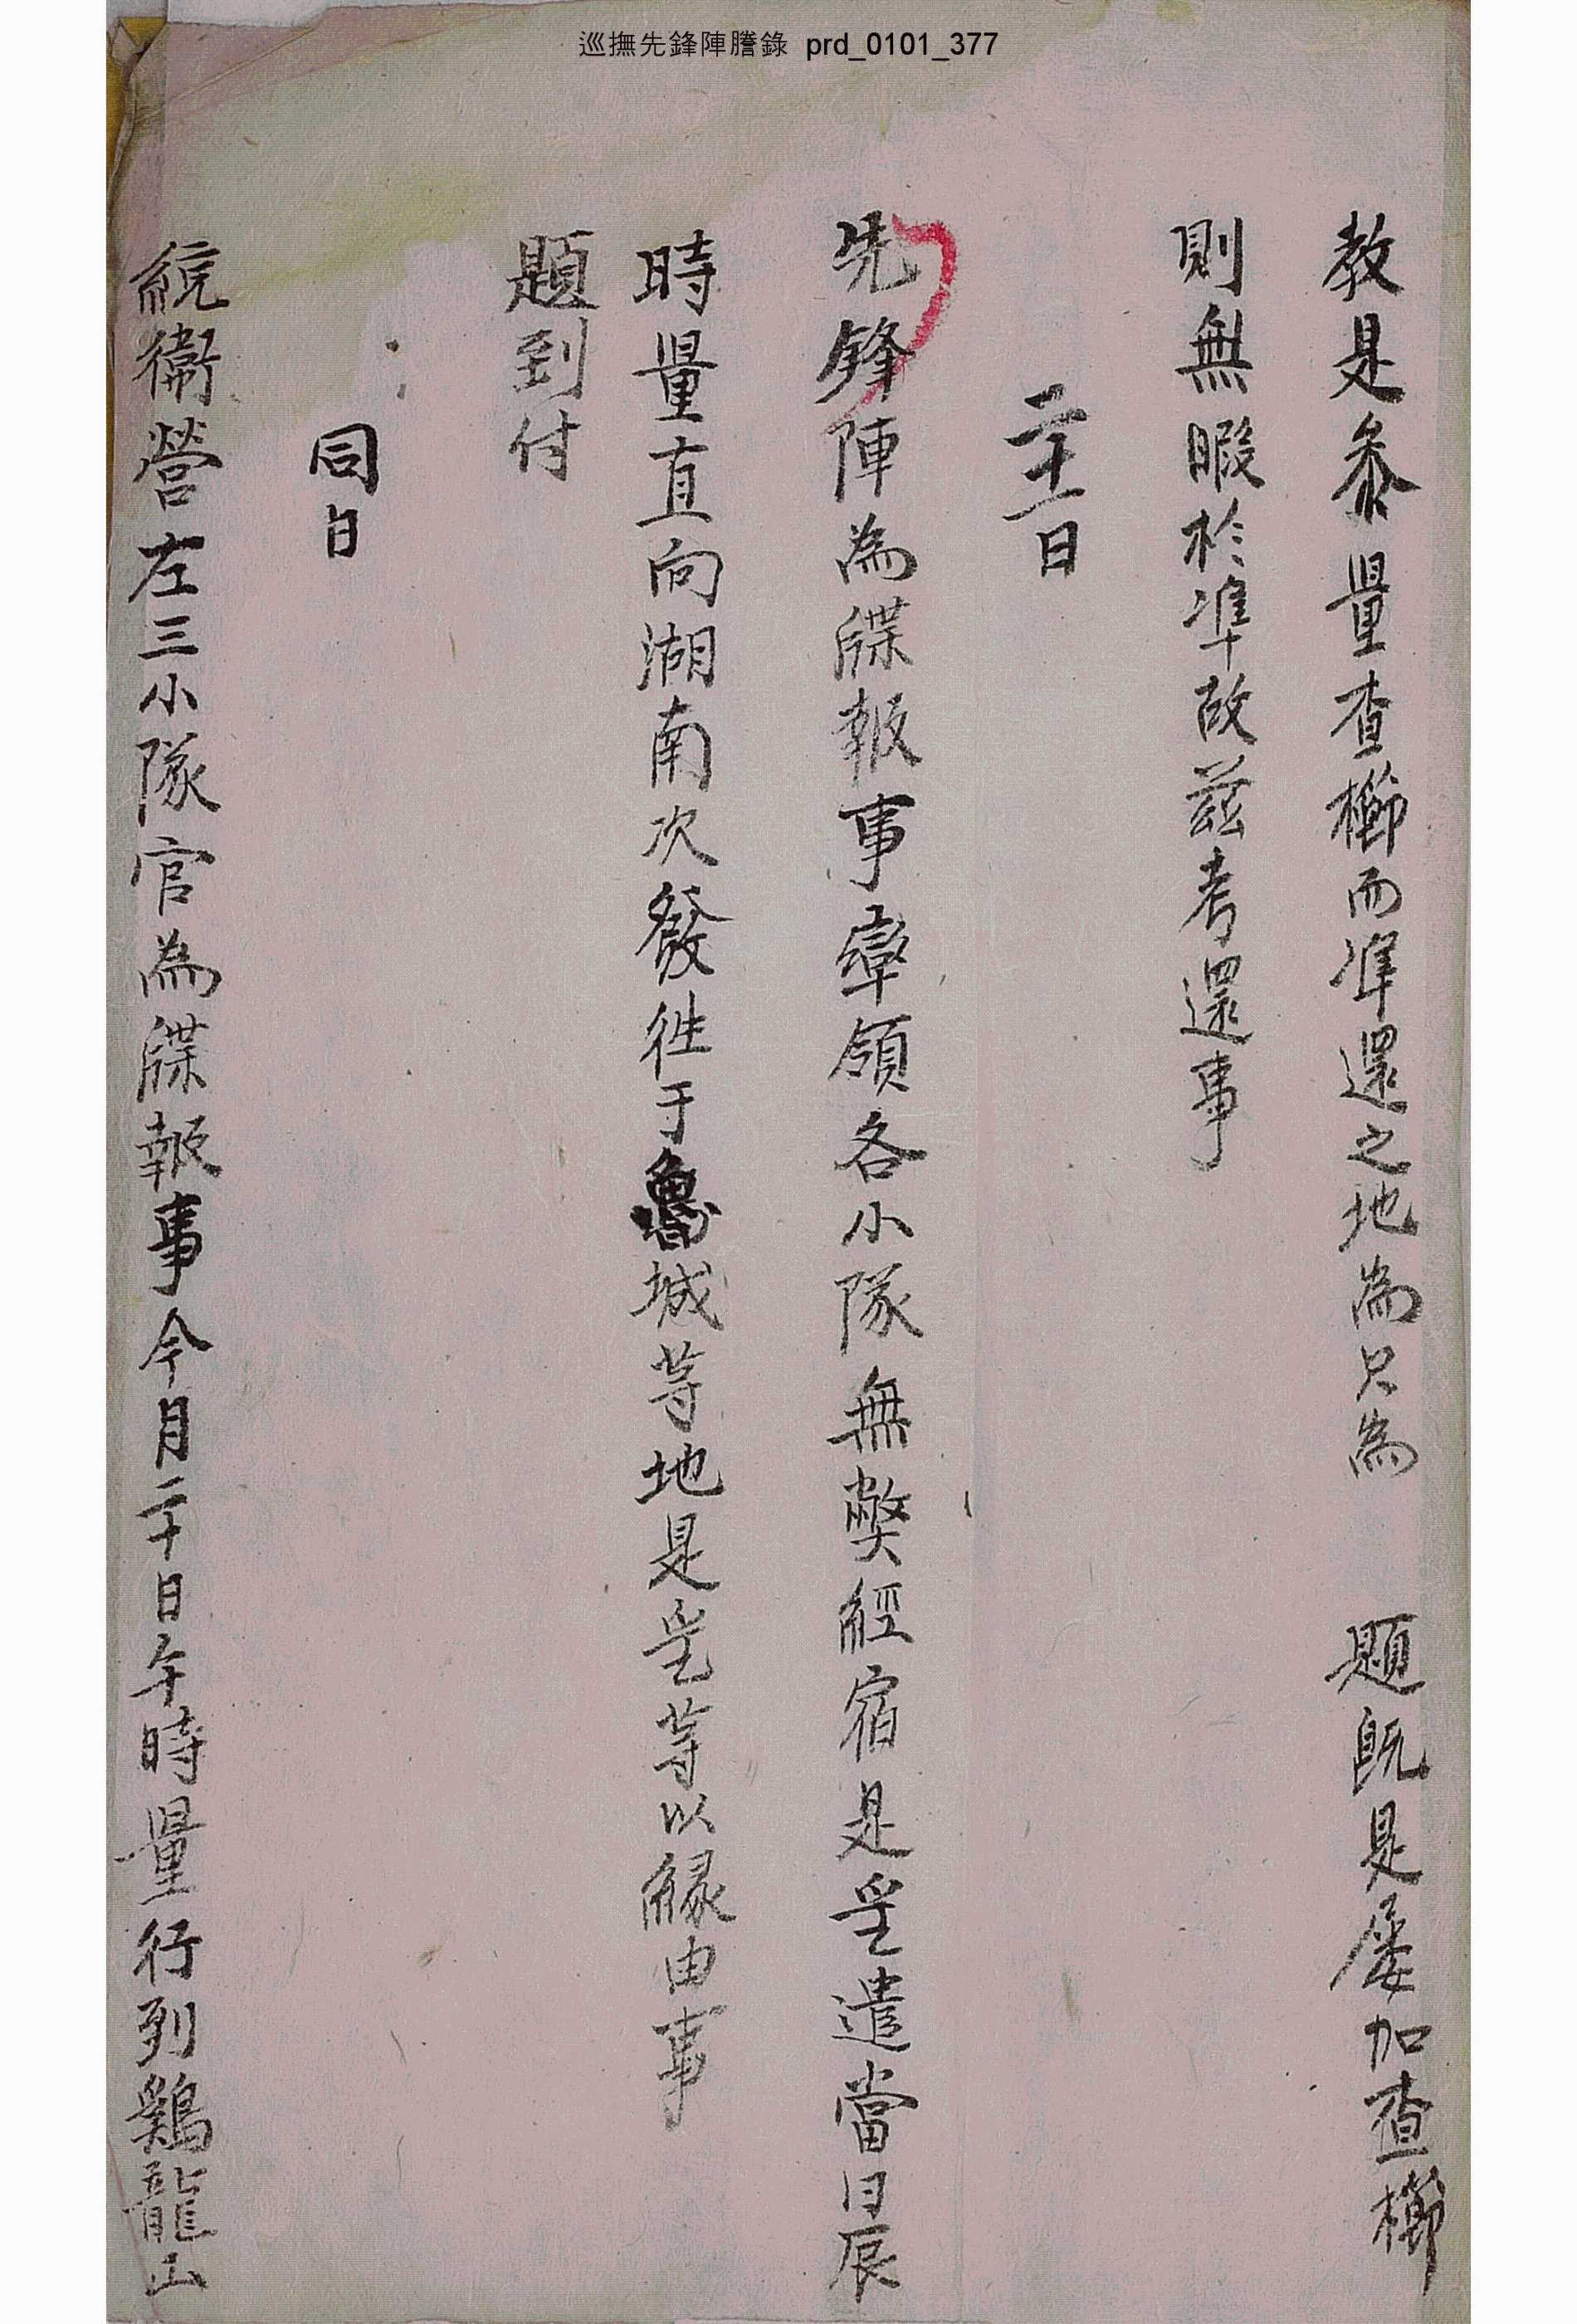 巡撫先鋒陣謄錄 prd_0101_377
教是叅量查櫛而準還之地爲只爲 題旣是屡加查櫛
則無暇於準故茲考還事
二十一日
先鋒陣為牒報事率領各小隊無獘經宿是乎遣當日辰
時量直向湖南次發徃于魯城等地是乎等以緣由事
題到付
同日
統衛營左三小隊官為牒報事今月二十日午時量行列鷄龍山